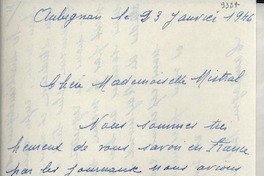 Aubignan le 23 Janvier 1946
Chère Mademoiselle Mistral
Nous sommes très
heureux de vous savoir en France
par les journaux nous avions